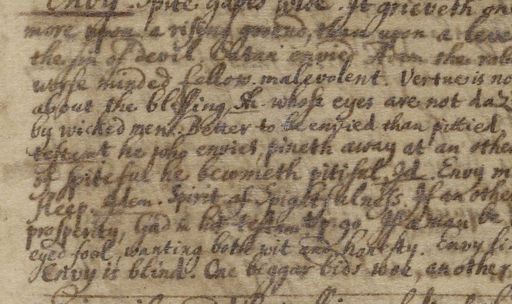 Envy. Spite gapes wide. It grieveth
more upon a rising ground, than upon a leve
the sin of devil. Satan envied Adam the
worse minded fellow. malevolent. Vertue is no
about the blessing whose eyes are not daz
by wicked men. Better to be envied than pittied
he who envies, pineth away at an othe
of spiteful he becometh pitiful. Id. Envy m
Idem. Spirit of Spightfulness. If an othe
prosperity, God in his If a man be
eyed fool, wanting both wit and honesty. Envy
Envy is blind. One beggar bids woe, an other